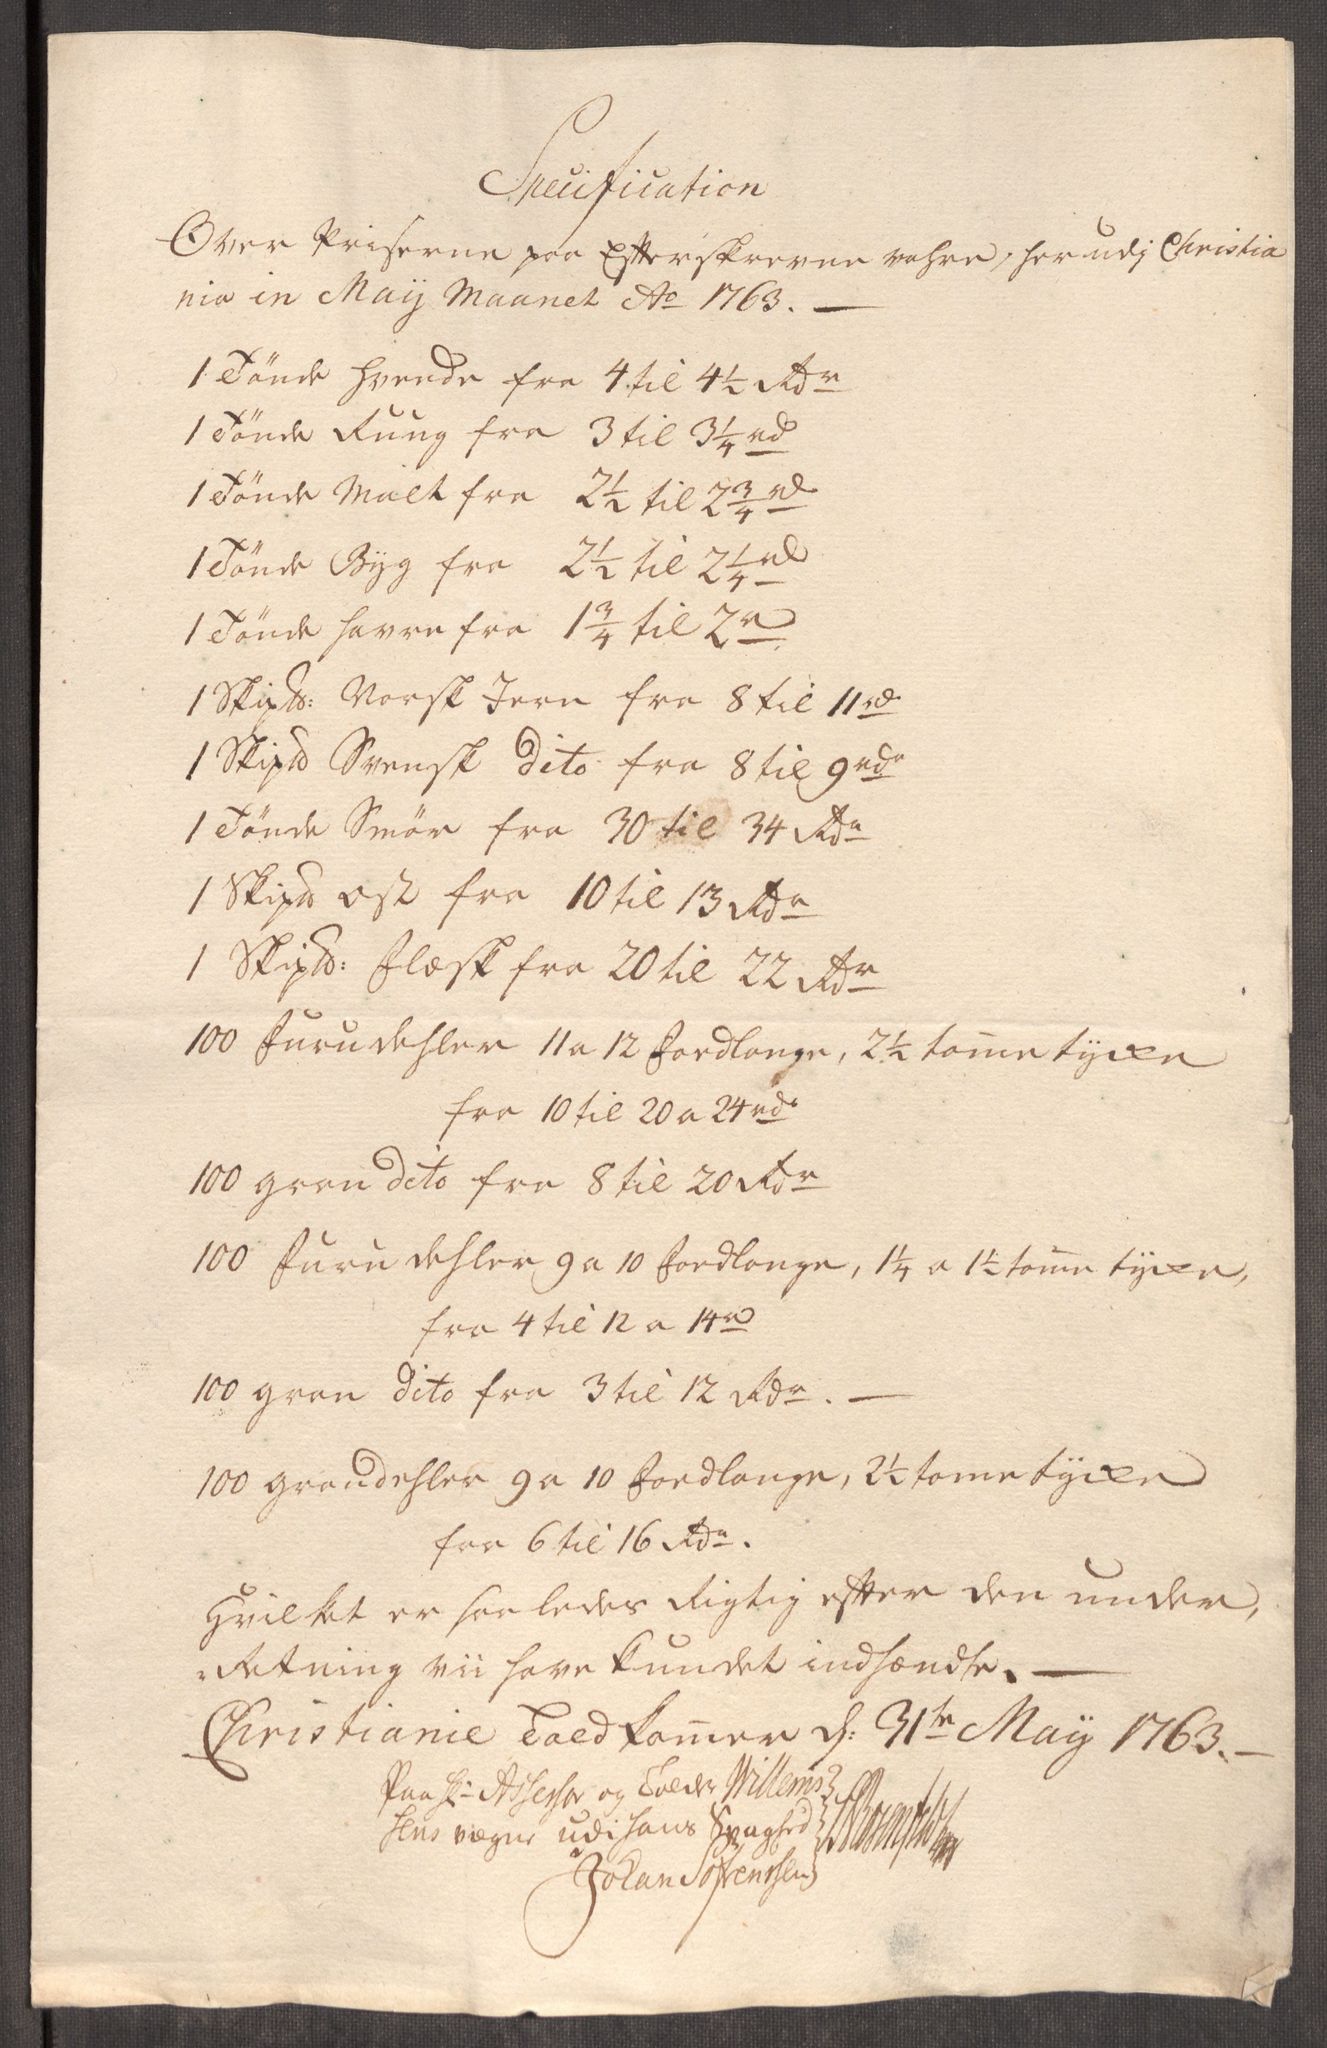 Specification
Over Priserne paa Efterskrevne vahre, her udj Christia
nia in Maij Maanet Ao 1763. —
1 Tönde Hvede fra 4 til 4½ Rdr
1 Tönde Rüug fra 3 til 3¼ rd
1 Tönde Malt fra 2½ til 2¾ rd
1 Tönde Byg fra 2½ til 2¼ rd
1 Tönde Havre fra 1¾ til 2 rd
1 Skipd: Norsk Jern fra 8 til 11 rd
1 Skipd Svensk dito fra 8 til 9 rdr
1 Tönde Smör fra 30 til 34 Rdr
1 Skipd Ost fra 10 til 13 Rdr
1 Skipd: Flæsk fra 20 til 22 Rdr
100 Furudehler 11 a 12 Foedlange, 2½ tom̄e tycke
fra 10 til 20 a 24 rdr
100 gran dito fra 8 til 20 Rdr
100 Furu dehler 9 a 10 Foedlange, 1¼ a 1½ tom̄e tycke,
fra 4 til 12 a 14 rd
100 gran dito fra 3 til 12 Rdr. —
100 grandehler 9 a 10 Foedlange, 2½ tome tycke
fra 6 til 16 Rdr.
Hvilket er saaledes Rigtig efter den under,
retning vii have kundet indhændte. —
Christianie Told Kam̄er d: 31te Maij 1763. —
Paa Hr Assessor og Tolder Willems
sens vægne udi hans Svaghed
Johan Sofrenssen